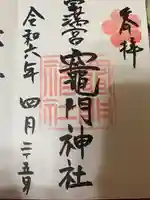 奉拝
宝満宮
竈門神社
令和六年 四月二十五日